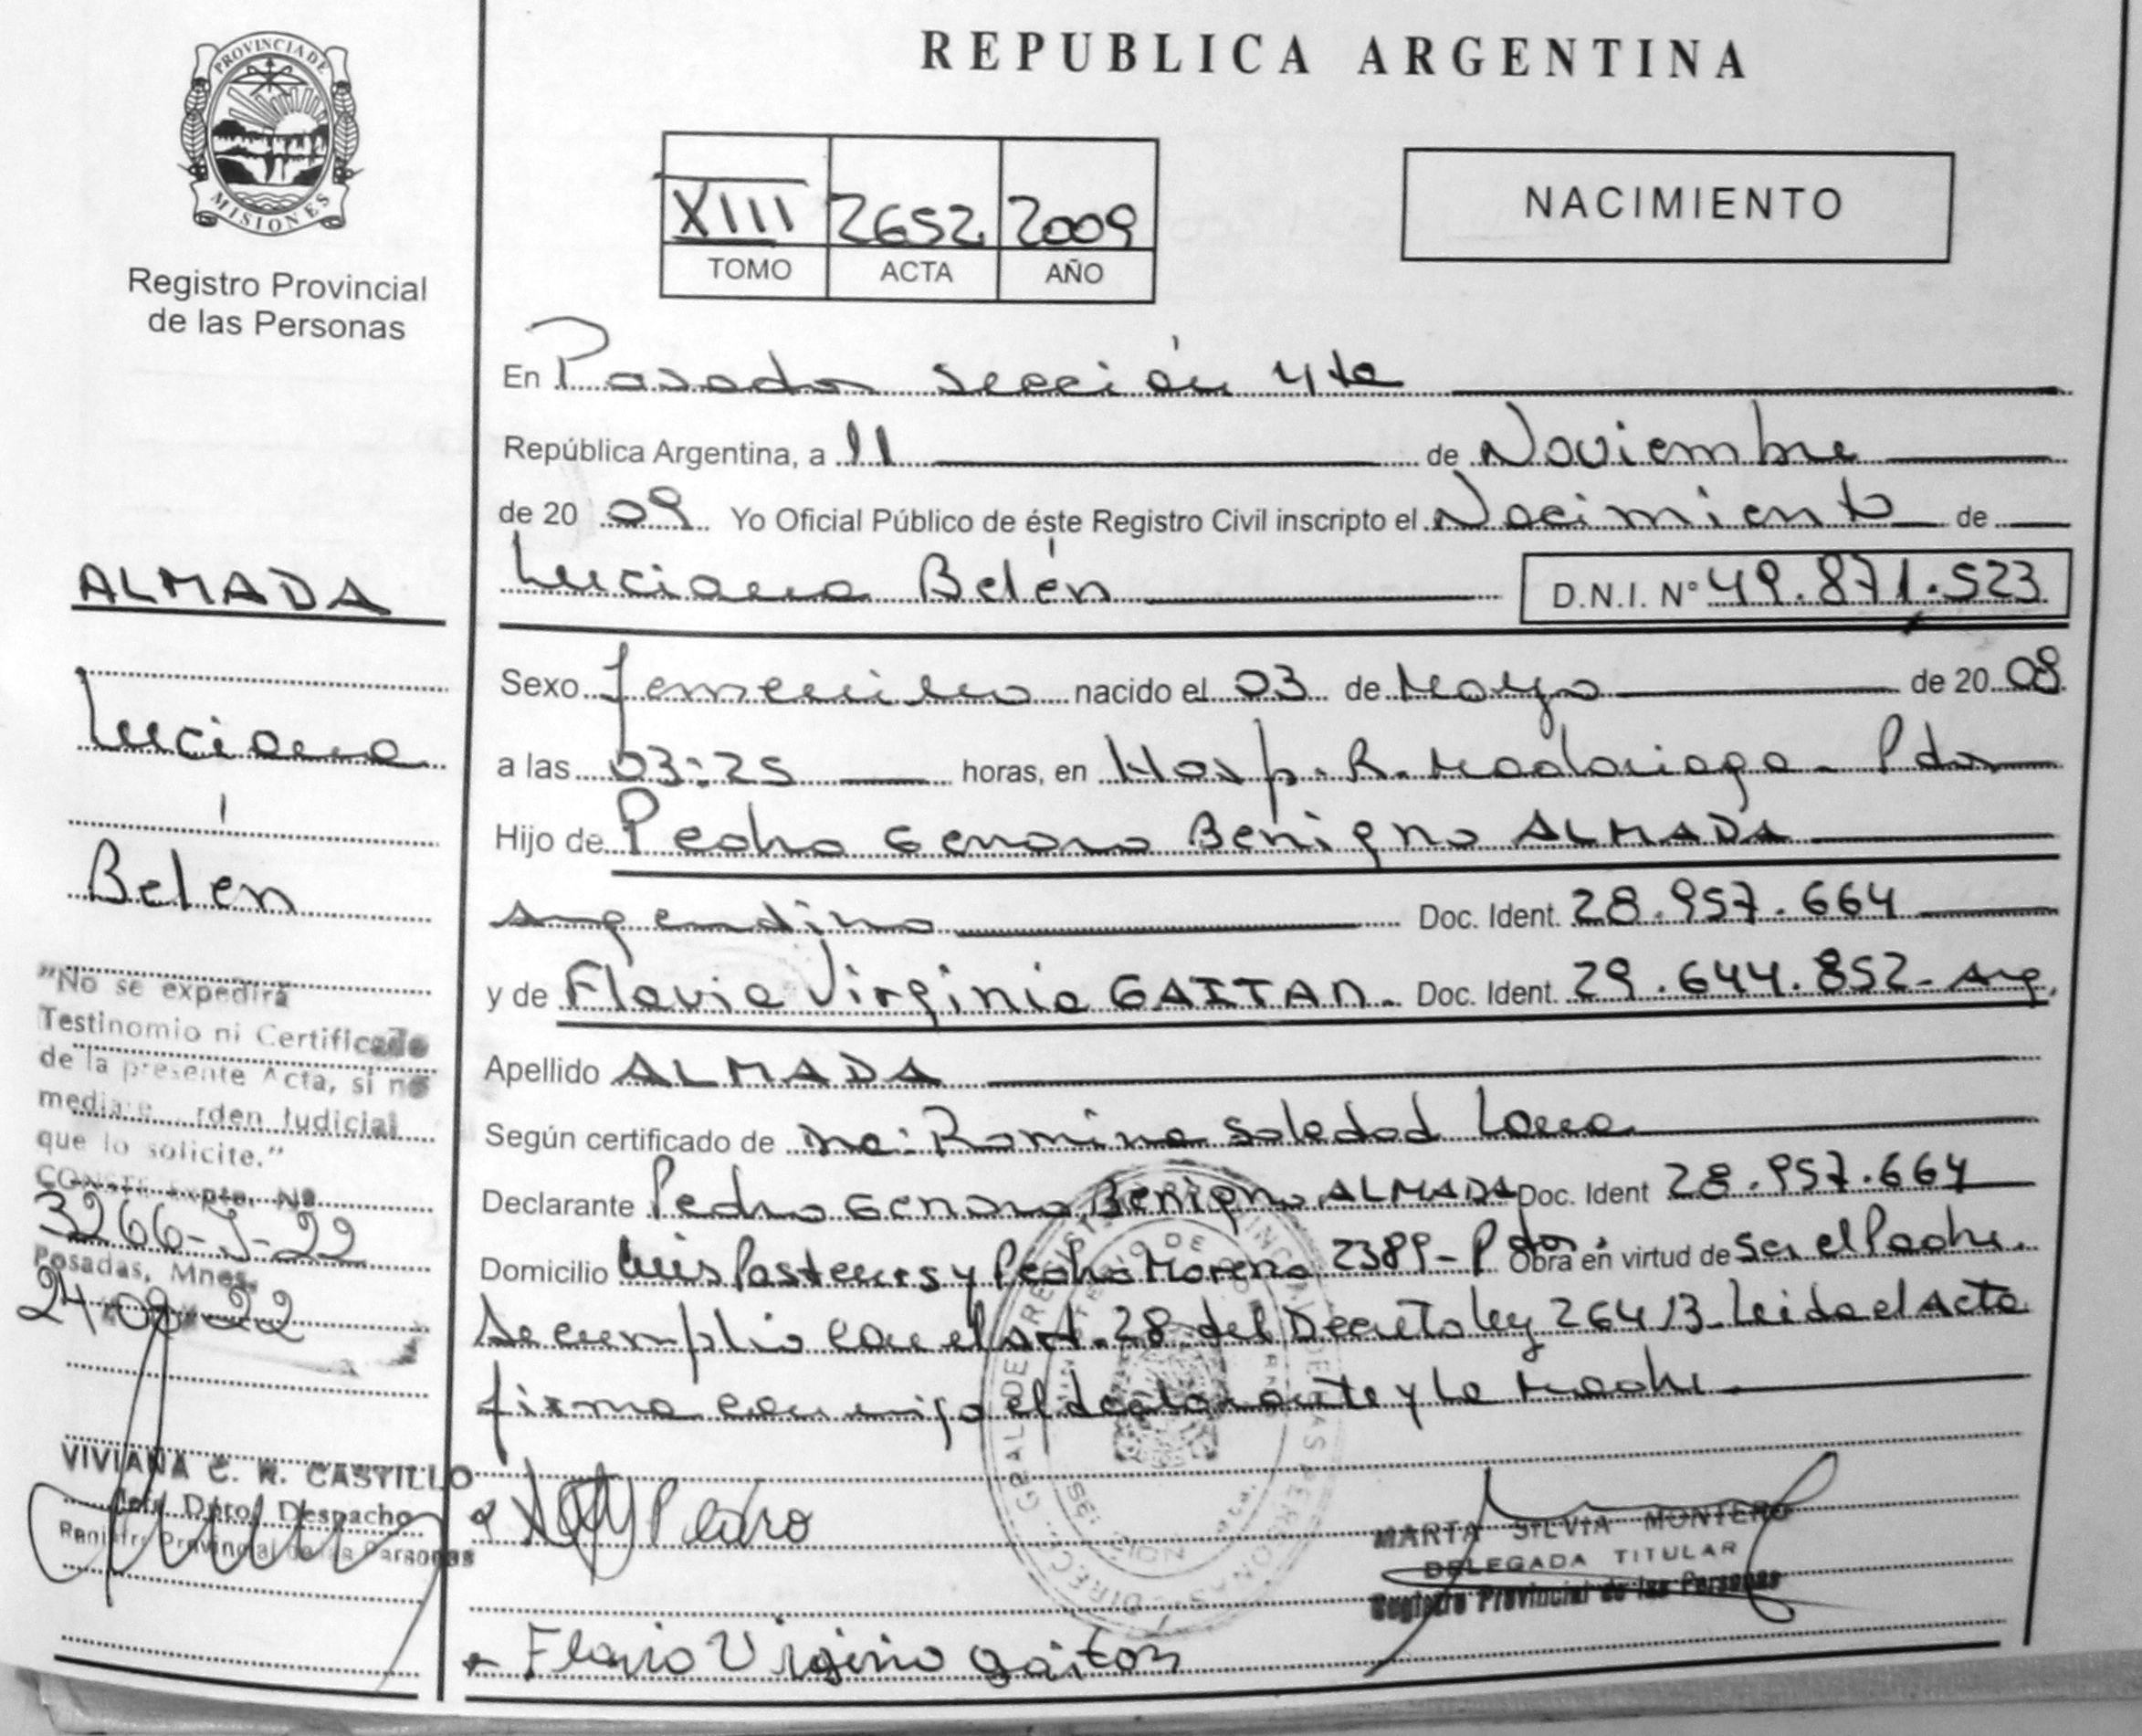 REPUBLICA ARGENTINA
PROVINCIA DE
MISIONES
Registro Provincial
de las Personas
XIII 2652 2009
TOMO ACTA AÑO
NACIMIENTO
En Posadas sección 4ta
República Argentina, a 11 de Noviembre
de 2009 Yo Oficial Público de éste Registro Civil inscripto el Nacimiento de
Luciana Belén D.N.I. Nº 49.871.523
Sexo femenino nacido el 03 de Mayo de 2008
a las 03:25 horas, en Hosp. R. Madariaga - Pdas
Hijo de Pedro Genaro Benigno ALMADA
Argentino Doc. Ident. 28.957.664
y de Flavia Virginia GAITAN. Doc. Ident. 29.644.852- Arg.
Apellido ALMADA
Según certificado de Romina Soledad
Declarante Pedro Genaro Benigno ALMADA Doc. Ident 28.957.664
Domicilio Luis Pasteur y Pedro Moreno 2389- Pdas. Obra en virtud de ser el Padre.
Se cumplio con el art. 28 del Decreto ley Leida el Acta
firma conmigo el declarante y la Madre.
Pedro
MARTA SILVIA MONTERO
DELEGADA TITULAR
Registro Provincial de las Personas
Flavia Virginia gaitan
ALMADA
Luciana
Belén
"No se expedirá
Testinomio ni Certificado
de la presente Acta, si no
mediare orden Judicial
que lo solicite."
CONSTE Expte. Nº
3266-J-22
Posadas, Mnes.
24-08-22
VIVIANA C. R. CASTILLO
Jefa Dpto. Despacho
Registro Provincial de las Personas